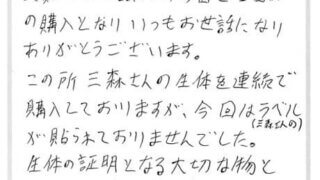 の購入となりいつもお世話になり
ありがとうございます。
この所 三森さんの生体を連続で
購入しておりますが、今回はラベル
(三森さんの)
が貼られておりませんでした。
生体の証明となる大切な物と